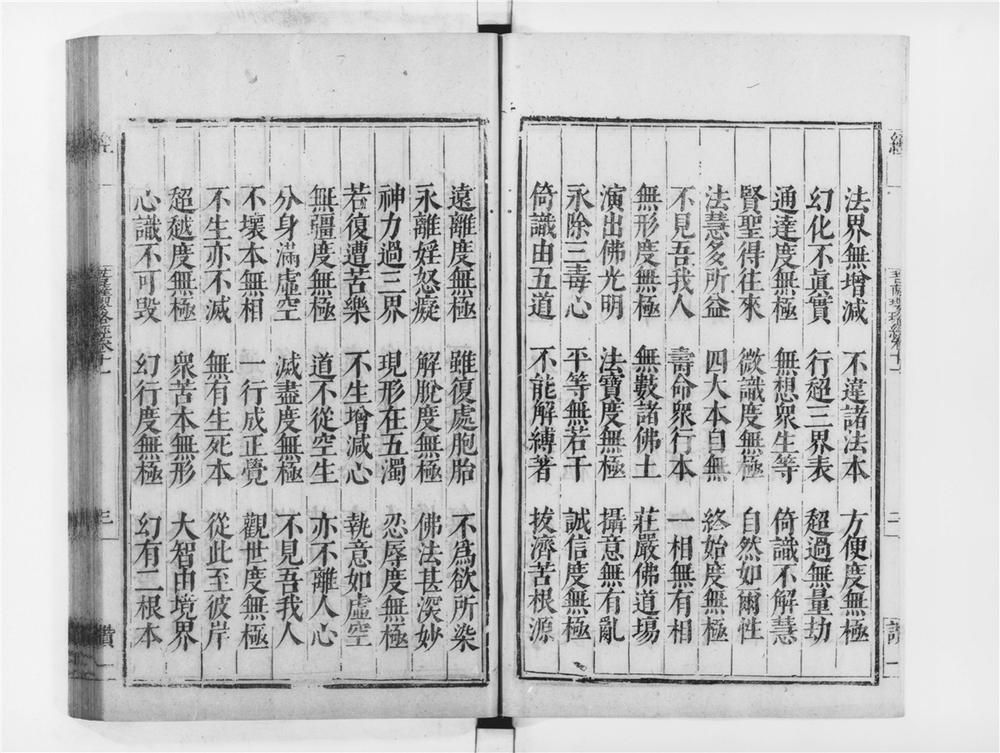 法界無增減　不違諸法本　方便度無極
幻化不眞實　行超三界表　超過無量劫
通達度無極　無想衆生等　倚識不解慧
賢聖得往來　微識度無極　自然如爾性
法慧多所益　四大本自無　終始度無極
不見吾我人　壽命衆行本　一相無有相
無形度無極　無數諸佛土　莊嚴佛道場
演出佛光明　法寶度無極　攝意無有亂
永除三毒心　平等無若干　誠信度無極
倚識由五道　不能解縛著　拔濟苦根源
遠離度無極　雖復處胞胎　不爲欲所染
永離婬怒癡　解脫度無極　佛法甚深妙
神力過三界　現形在五濁　忍辱度無極
若復遭苦樂　不生增減心　執意如虛空
無疆度無極　道不從空生　亦不離人心
分身滿虛空　滅盡度無極　不見吾我人
不壞本無相　一行成正覺　觀世度無極
不生亦不滅　無有生死本　從此至彼岸
超越度無極　衆苦本無形　大智由境界
心識不可毀　幻行度無極　幻有二根本